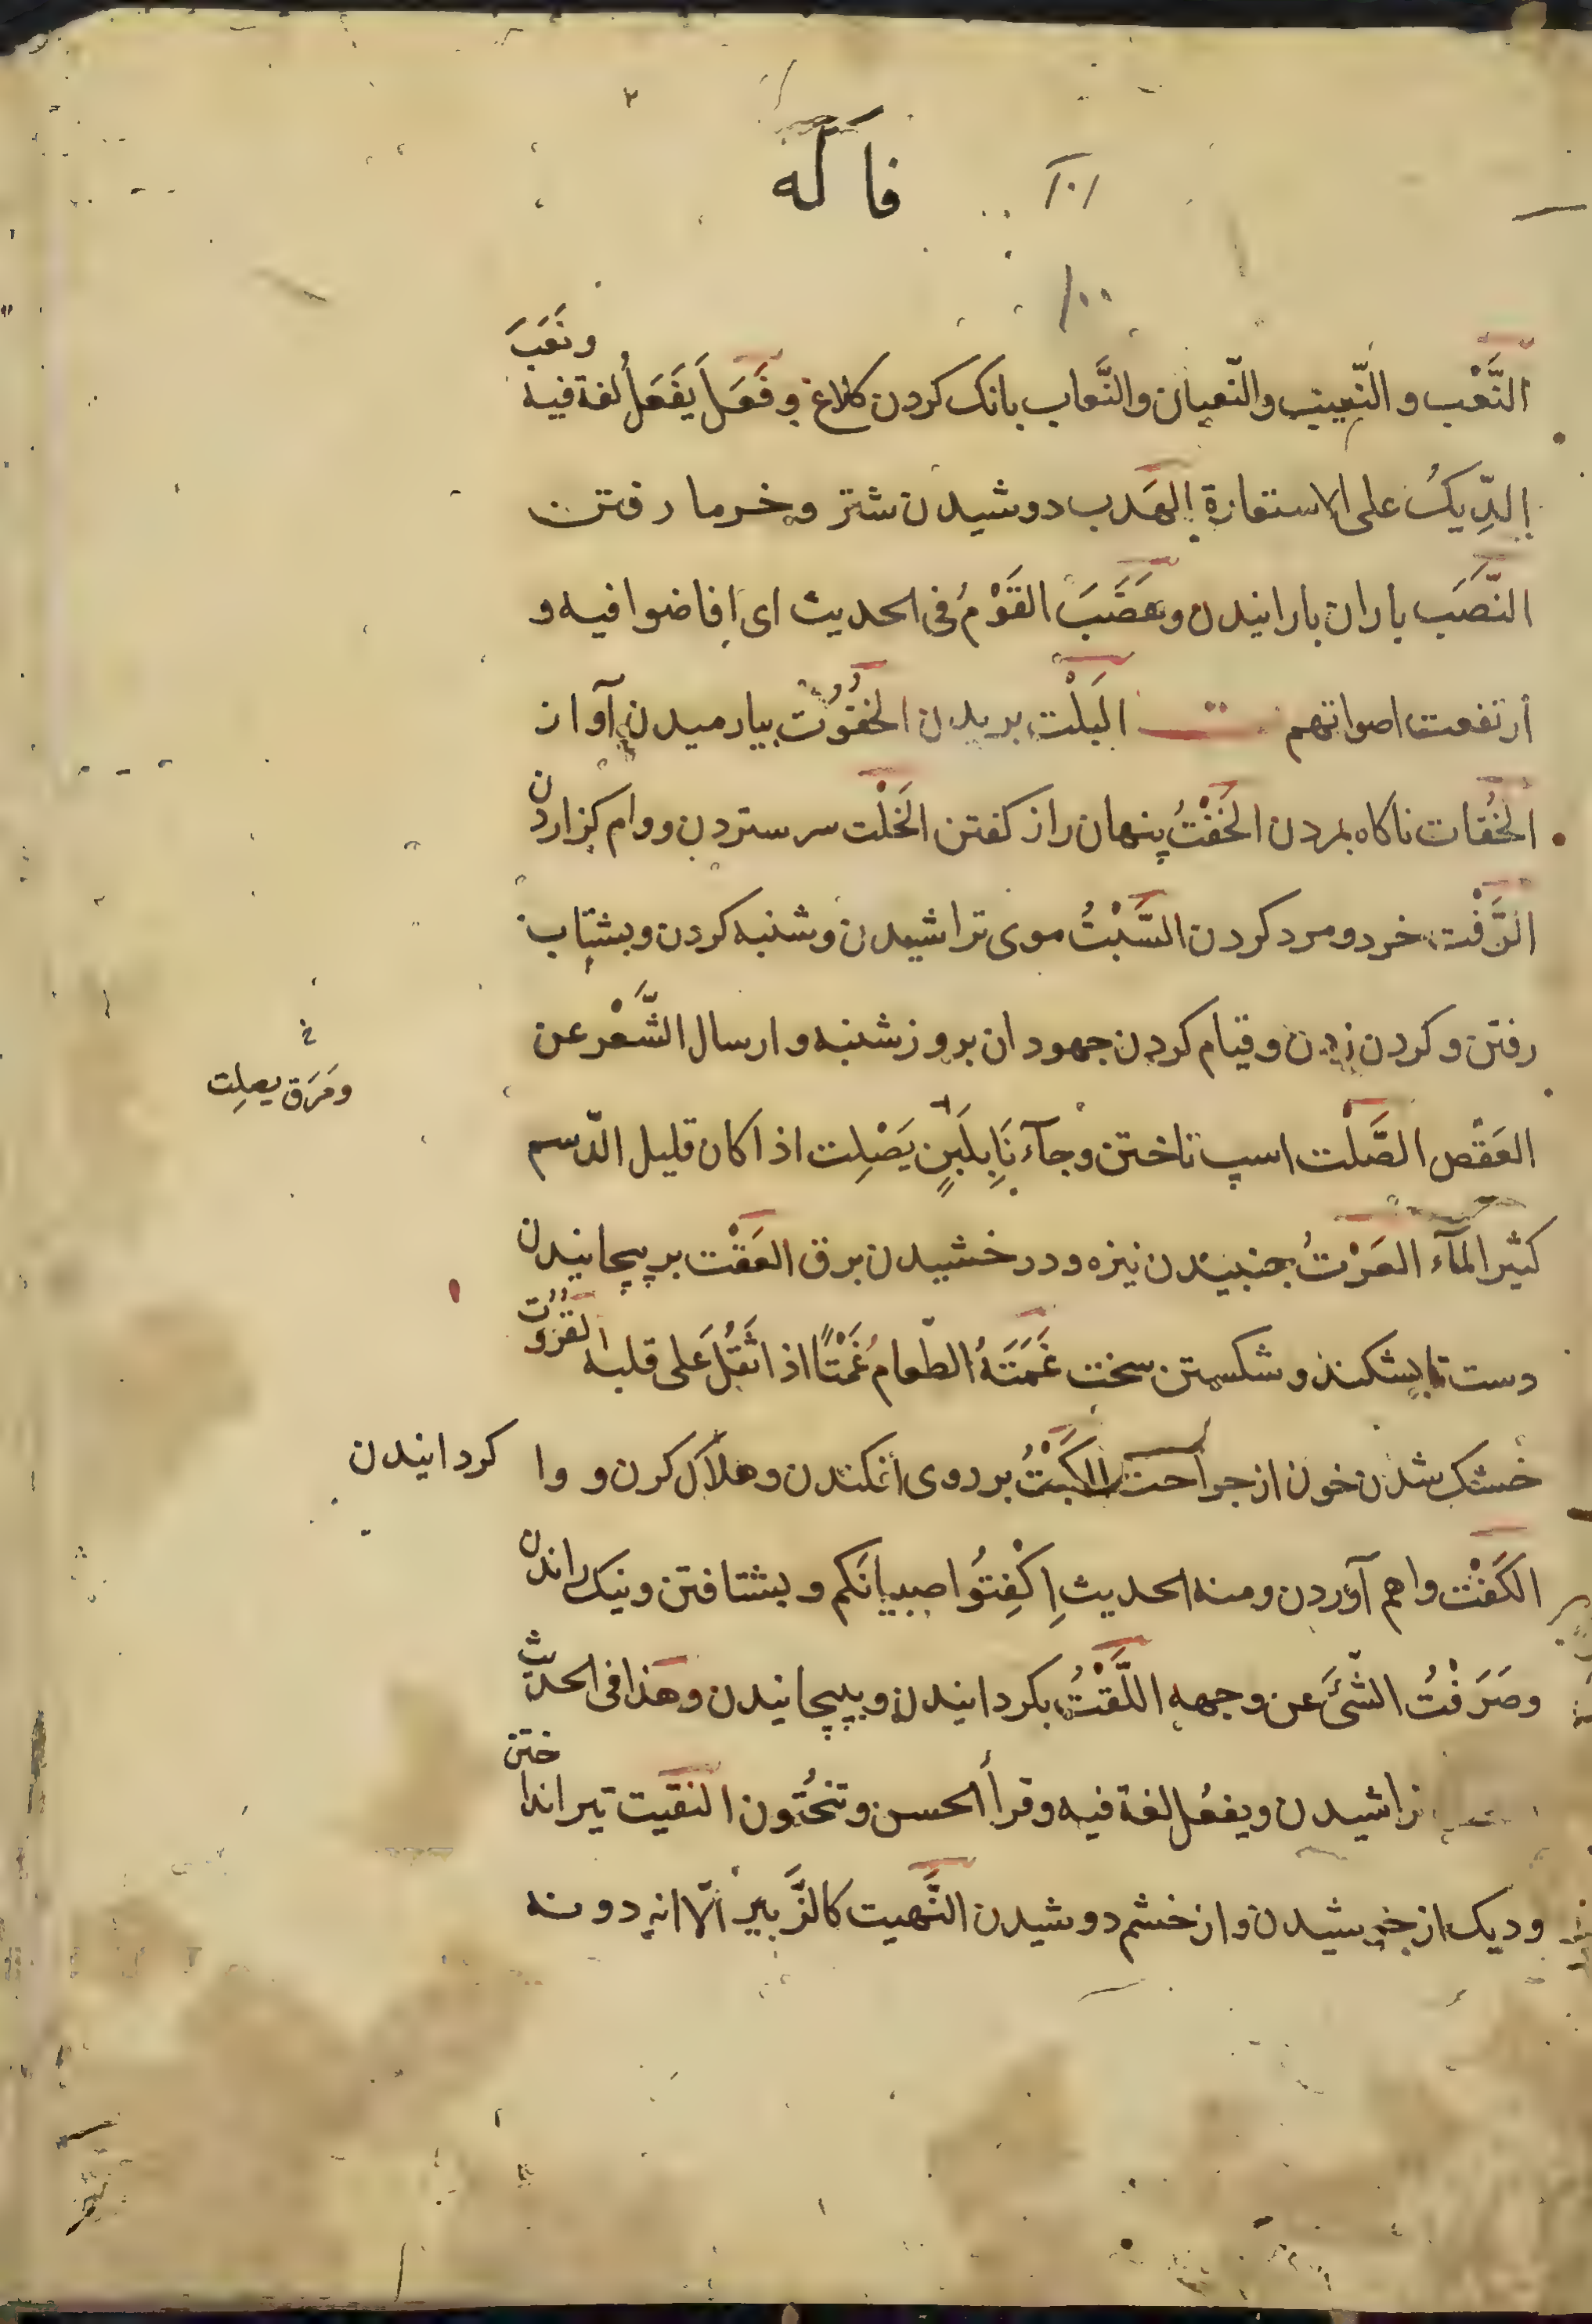 فا له
۱۰۱
۱۰۰
النَّعْب و النَّعیب والنَّعبان والنَّعاب بانک کردن کلاغ و فَعَلَ یَفعَلُ لغة فیه ونَعَبَ
الدِّیکُ علی الاستعارة الهَدب دوشیدن شتر وخرما رفتن
النّصَب باران بارانیدن وهَضَبَ القَوْمُ فی الحدیث ای افاضوا فیه و
ارتفعت اصواتهم البَلْت بریدن الخفُوُت بیارمیدن آواز
الخُفات ناکاه بمردن الخَفْتُ پنهان راز کفتن الخَلْت سر ستردن ووام کزاردن
الرَّفْت خرد ومرد کردن السَّبْتُ موی تراشیدن وشنبه کردن وبشتاب
رفتن وکردن زدن وقیام کردن جهودان بروز شنبه وارسال الشَّعْر عن
ومَرَق یصلِت خ
العَقْص الصَّلْت اسپ تاختن وجآءنا بِلَبَنٍ یَصْلِت اذا کان قلیل الدّسم
کثیر المآء العَرْتُ جنبیدن نیزه ودرخشیدن برق العَفْت برپیچانیدن
دست تا بشکند وشکستن سخت غَمَتَهُ الطّعامُ غَمْتًا اذا ثَقُلَ علی قلبه القُرُوُت
خشک شدن خون از جراحت الکَبْتُ بر روی افکندن وهلاک کرن و وا کردانیدن
الکَفْت واهم آوردن ومنه الحدیث اِکْفِتُوا صبیانکم وبشتافتن ونیک راندن
وصَرَفْتُ الشَّئَ عن وجهه اللَّفْتُ بکردانیدن وبپیچانیدن وهذا فی الحدیث
تراشیدن ویفعُل لغة فیه وقرأ الحسن وتنحُتون النفیت تیر انداختن
ودیک از جوشیدن واز خشم دوشیدن النَّهیت کالزَّبیر الّا انه دونه